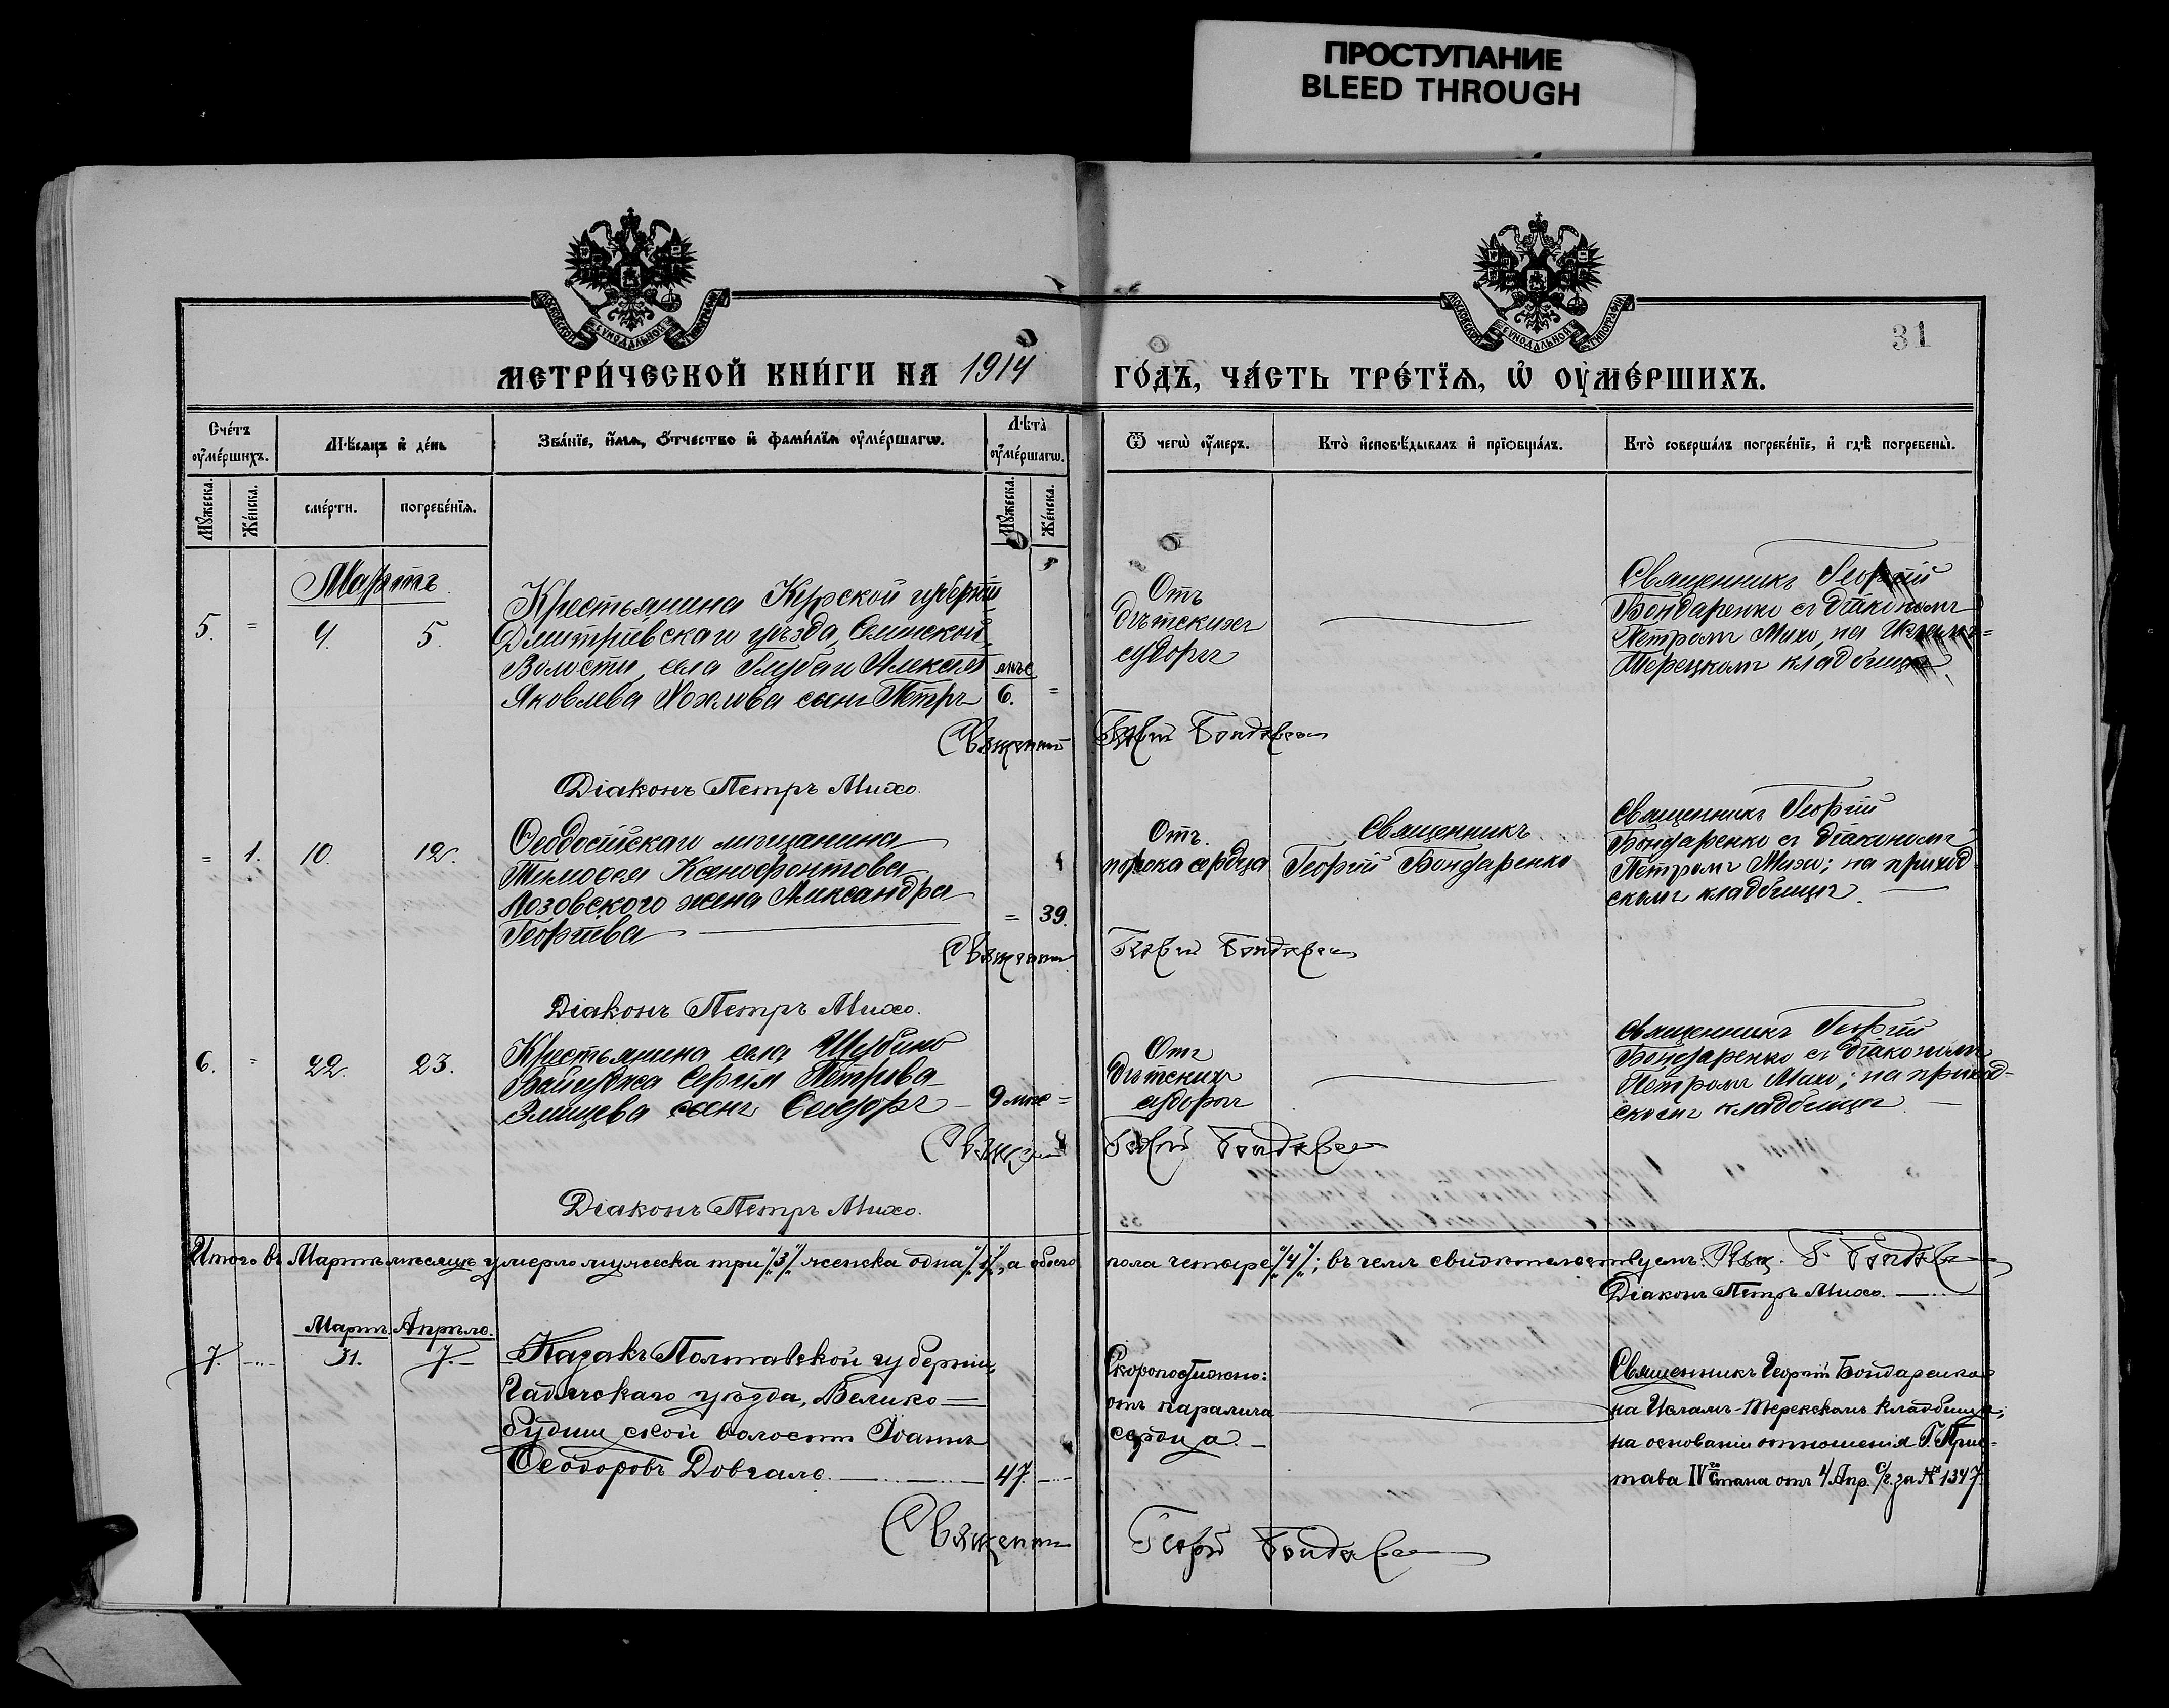 ПРОСТУПАНИЕ
BLEED THROUGH
МОСКОВСКОЙ СѴНОДАЛЬНОЙ ТИПОГРАФІИ
МОСКОВСКОЙ СѴНОДАЛЬНОЙ ТИПОГРАФІИ
31
МЕТРИ́ЧЕСКОЙ КНИ́ГИ НА 1914 ГО́ДЪ, ЧА́СТЬ ТРЕ́ТЇѦ, Ѡ҆ ОУ҆МЕ́РШИХЪ.
Сче́тъ оу҆ме́ршихъ.
Мѣ́сяцъ и҆ де́нь
Зва́нїе, и҆́мѧ, ѻ҆́тчество и҆ фами́лїѧ оу҆ме́ршагѡ.
Лѣ́та оу҆ме́ршагѡ.
Ѿ чегѡ̀ оу҆́меръ.
Кто̀ и҆сповѣ́дывалъ и҆ прїѡбща́лъ.
Кто̀ соверша́лъ погребе́нїе, и҆ гдѣ̀ погребены̀.
Мꙋ́жеска.
Же́нска.
сме́рти.
погребе́нїѧ.
Мꙋ́жеска.
Же́нска.
Мартъ
5. = 4. 5.
Крестьянина Курской губерніи
Дмитріевскаго уѣзда,
Волости, села Алексѣя
Яковлева Хохлова сынъ Петръ
мѣс
6. =
Отъ
дѣтскихъ
судоргъ
Священникъ Георгій
Бондаренко съ діакономъ
Петромъ Михо, на Исламъ=
Терецкомъ кладбищѣ.
Священникъ Георгій Бондаренко
Діаконъ Петръ Михо.
= 1. 10. 12.
Ѳеодосійскаго мѣщанина
Тимоѳея Ксенофонтова
Лозовского жена Александра
Георгіева
= 39.
Отъ
порока сердца
Священникъ
Георгій Бондаренко
Священникъ Георгій
Бондаренко съ діакономъ
Петромъ Михо; на приход-
скомъ кладбищѣ.
Священникъ Георгій Бондаренко
Діаконъ Петръ Михо.
6. = 22. 23.
Крестьянина села Шубино
Байгуджа Сергія Петрова
сынъ Ѳеодоръ
9 мѣс =
Отъ
дѣтскихъ
судоргъ
Священникъ Георгій
Бондаренко съ діакономъ
Петромъ Михо; на приход-
скомъ кладбищѣ
Священникъ Георгій Бондаренко
Діаконъ Петръ Михо.
Итого въ Мартѣ мѣсяцѣ умерло мужеска три „/3/„ женска одна „/1/„, а обоего пола четыре „/4/„; въ чемъ свидѣтельствуемъ: Свящ. Г. Бондаренко
Діаконъ Петръ Михо.
Мартъ. Апрѣль.
7. 31. 7.
Казакъ Полтавской губерніи,
Гадячскаго уѣзда, Велико-
будищской волости Іоаннъ
Ѳеодоровъ Довгаль.
47.
Скоропостижно:
отъ паралича
сердца.
Священникъ Георгій Бондаренко
на Исламъ-Терекскомъ кладбищѣ;
на основаніи отношенія Г. Прис-
тава IV го стана отъ 4 Апр. с/г. за № 1347.
Священникъ Георгій Бондаренко